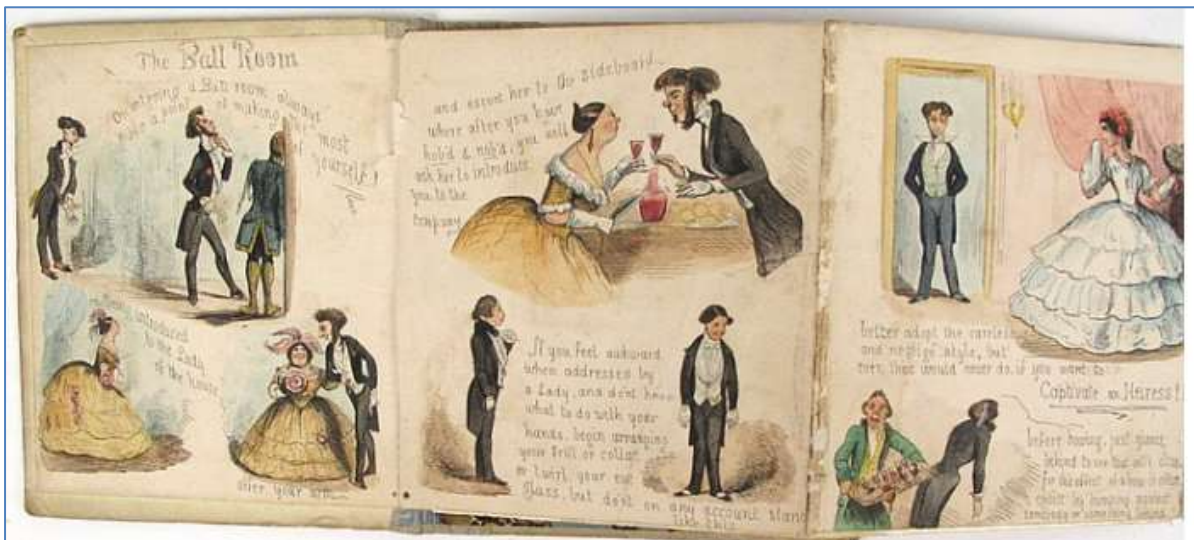 The Ball Room
On entering a Ball room, always
make a point of making the most
of yourself!
introduced
to the Lady
of the House
over your arm
and escort her to the sideboard
where after you have
hob'd & nob'd, you will
ask her to introduce
you to the
company
If you feel awkward
when addressed by
a Lady, and don't know
what to do with your
hands, begin arranging
your frill or collar
or twirl your eye
Glass, but don't on any account stand
like this
better adopt the careless
and negligé style, but
even that would never do, if you want to
Captivate an Heiress!
before bowing, just glance
behind to see that all's clear,
for the effect of a bow is often
spoilt by bumping against
somebody or something behind